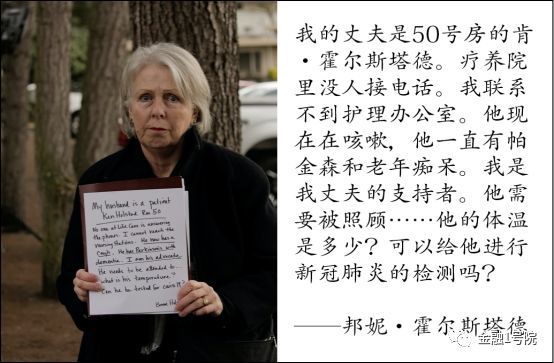 My husband is a patient
Ken Holstad Rm 50
No one at Life Care is answering
the phones. I cannot reach the
nursing stations. He now has a
Cough. He has Parkinsons with
dementia. I am his advocate.
He needs to be attended to...
what is his temperature?
Can he be tested for COVID 19?
Bonnie Hol
我的丈夫是50号房的肯
·霍尔斯塔德。疗养院
里没人接电话。我联系
不到护理办公室。他现
在在咳嗽，他一直有帕
金森和老年痴呆。我是
我丈夫的支持者。他需
要被照顾……他的体温
是多少？可以给他进行
新冠肺炎的检测吗？
——邦妮·霍尔斯塔德
金融1号院